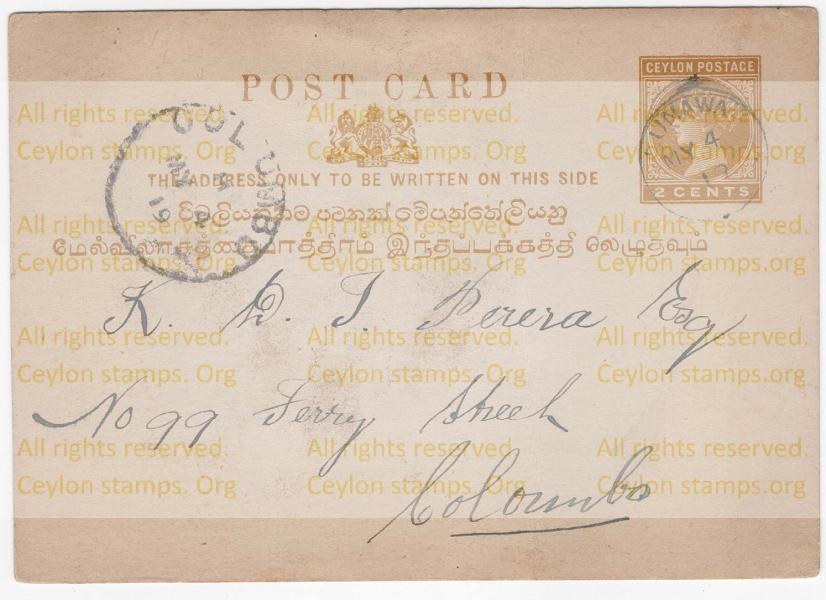 POST CARD
CEYLON POSTAGE
2 CENTS
UNAWA
MY 4
COLOMBO
MY 4
19
THE ADDRESS ONLY TO BE WRITTEN ON THIS SIDE
විමලියනම පමනක් මේපත්තේලියනු
மேல்விலாசத்தைமாத்திரம் இந்தப்பக்கத்தி லெழுதவும்
K. D. J. Perera Esq
No 99 Ferry Street
Colombo
All rights reserved. All rights reserved. All rights reserved.
Ceylon stamps. Org Ceylon stamps. Org Ceylon stamps. Org
All rights reserved. All rights reserved. All rights reserved.
Ceylon stamps. Org Ceylon stamps. Org Ceylon stamps. Org
All rights reserved. All rights reserved. All rights reserved.
Ceylon stamps. Org Ceylon stamps. Org Ceylon stamps. Org
All rights reserved. All rights reserved. All rights reserved.
Ceylon stamps. Org Ceylon stamps. Org Ceylon stamps. Org